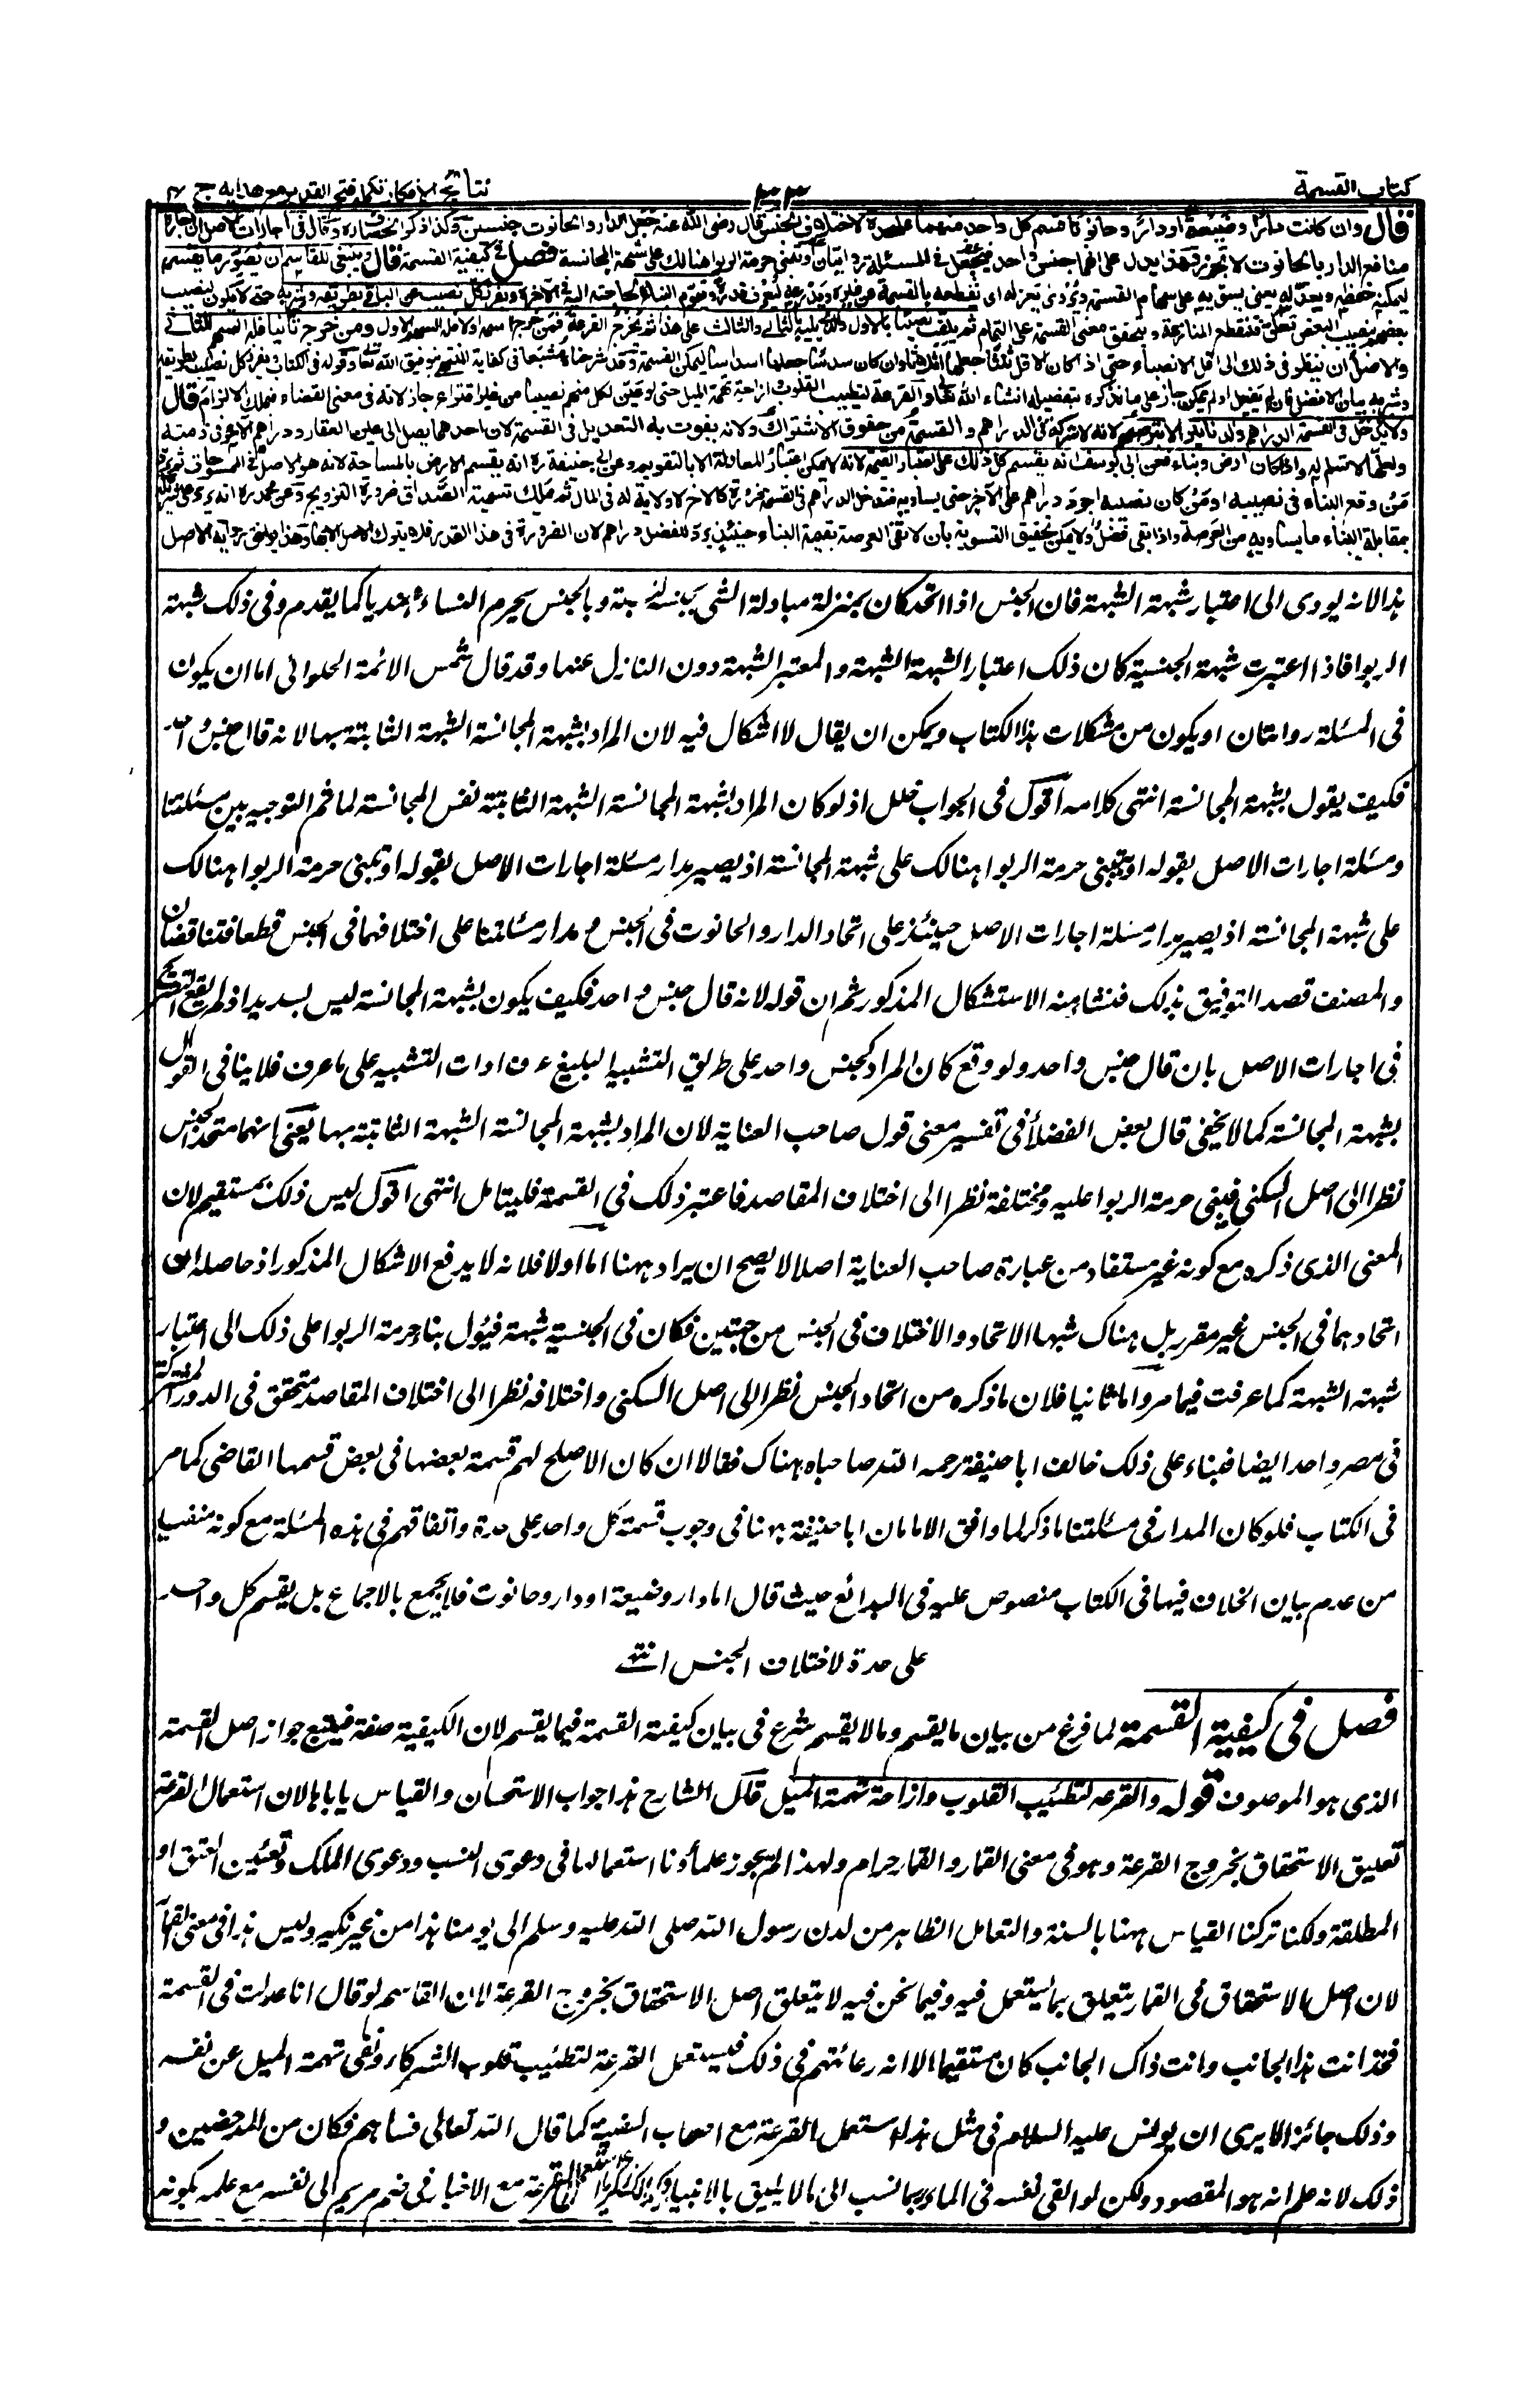 كتاب القسمة
نتائج الافكار تكملہ فتح القدير مع هدايه ج
قال وان كانت دار وضيعة او دار وحانوتا قسم كل واحد منهما على حدة لاختلاف الجنس قال رضى الله عنه جعل الدار والحانوت جنسين وكذا ذكر الخصاف وقال فى اجارات الاصل ان اجارة
منافع الدار بالحانوت لا تجوز وهذا يدل على انهما جنس واحد فيجعل فى المسئلة روايتان او تبنى حرمة الربوا هنالك على شبهة المجانسة فصل فى كيفية القسمة قال وينبغى للقاسم ان يصور ما يقسمه
ليمكنه حفظه ويعدله يعنى يسويه على سهام القسمة ويروى يعزله اى يقطعه بالقسمة عن غيره ويذرعه ليعرف قدره ويقوم البناء لحاجته اليه فى الآخرة ويفرز كل نصيب عن الباقى بطريقه وشربه حتى لا يكون لنصيب
بعضهم بنصيب البعض تعلق فتنقطع المنازعة ويتحقق معنى القسمة على التمام ثم يلقب نصيبا بالاول والذى يليه بالثانى والثالث على هذا ثم يخرج القرعة فمن خرج اسمه اولا فله السهم الاول ومن خرج ثانيا فله السهم الثانى
والاصل ان ينظر فى ذلك الى اقل الانصباء حتى اذا كان الاقل ثلثا جعلها اثلاثا وان كان سدسا جعلها اسداسا ليمكن القسمة وقد شرحناه مشبعا فى كفاية المنتهى بتوفيق الله تعالى وقوله فى الكتاب ويفرز كل نصيب بطريقه
وشربه بيان الافضل فان لم يفعل او لم يمكن جاز على ما نذكره بتفصيله انشاء الله تعالى والقرعة لتطييب القلوب وازاحة تهمة الميل حتى لو عين لكل منهم نصيبا من غير اقتراع جاز لانه فى معنى القضاء فيملك الالزام قال
ولا يدخل فى القسمة الدراهم والدنانير الا بتراضيهم لانه لا شركة فى الدراهم والقسمة من حقوق الاشتراك ولانه يفوت به التعديل فى القسمة لان احدهما يصل الى عين العقار ودراهم الآخر فى ذمته
ولعلها لا تسلم له واذا كان ارض وبناء فعن ابى يوسف انه يقسم كل ذلك على اعتبار القيمة لانه لا يمكن اعتبار المعادلة الا بالتقويم وعن ابى حنيفة رہ انه يقسم الارض بالمساحة لانه هو الاصل فى الممسوحات ثم يرد
من وقع البناء فى نصيبه او من كان نصيبه اجود دراهم على الآخر حتى يساويه فتدخل الدراهم فى القسمة ضرورة كالاخ لا ولاية له فى المال ثم يملك تسمية الصداق ضرورة التزويج وعن محمد رہ انه يرد على شريكه
بمقابلة البناء ما يساويه من العرصة واذا بقى فضل ولا يمكن تحقيق التسوية بان لا تفى العرصة بقيمة البناء حينئذ يرد للفضل دراهم لان الضرورة فى هذا القدر فلا يترك الاصل الا بها وهذا يوافق رواية الاصل
ہذا لانه يودى الى اعتبار شبهة الشبهة فان الجنس اذا اتحد كان بمنزلة مبادلة الشى بجنسه نسيئة وبالجنس يحرم النساء عندنا كما تقدم وفى ذلك شبهة
الربوا فاذا اعتبرت شبهة الجنسية كان ذلك اعتبار الشبهة الشبهة والمعتبر الشبهة دون النازل عنها وقد قال شمس الائمة الحلوانى اما ان يكون
فى المسئلة روايتان او يكون من مشكلات ہذا الكتاب ويمكن ان يقال لا اشكال فيه لان المراد بشبهة المجانسة الشبهة الثابتة بها لانه قال جنس واحد
فكيف يقول بشبهة المجانسة انتهى كلامه اقول فى الجواب خلل اذ لو كان المراد بشبهة المجانسة الشبهة الثابتة نفس المجانسة لما تم التوجيه بين مسئلتنا
ومسئلة اجارات الاصل بقوله او تبنى حرمة الربوا ہنالك على شبهة المجانسة اذ يصير مدار مسئلة اجارات الاصل بقوله او تبنى حرمة الربوا ہنالك
على شبهة المجانسة اذ يصير مدار مسئلة اجارات الاصل حينئذ على اتحاد الدار والحانوت فى الجنس ومدار مسئلتنا على اختلافهما فى الجنس قطعا فتناقضان
والمصنف قصد التوفيق بذلك فنشا منه الاستشكال المذكور ثم ان قوله لانه قال جنس واحد فكيف يكون بشبهة المجانسة ليس بسديد اذ لم يقع التصريح
فى اجارات الاصل بان قال جنس واحد ولو وقع كان المراد كجنس واحد على طريق التشبيه البليغ بحذف ادات التشبيه على ما عرف فلا ينافى القول
بشبهة المجانسة كما لا يخفى قال بعض الفضلاء فى تفسير معنى قول صاحب العناية لان المراد بشبهة المجانسة الشبهة الثابتة بها يعنى انهما متحد الجنس
نظرا الى اصل السكنى فيبنى حرمة الربوا عليه ومختلفة نظرا الى اختلاف المقاصد فاعتبر ذلك فى القسمة فليتامل انتهى اقول ليس ذلك بمستقيم لان
المعنى الذى ذكره مع كونه غير مستفاد من عبارة صاحب العناية اصلا لا يصح ان يراد ہہنا اما اولا فلانه لا يدفع الاشكال المذكور اذ حاصله ان
اتحادہما فى الجنس غير مقرر بل ہناك شبہا الاتحاد والاختلاف فى الجنس من جہتين فكان فى الجنسية شبهة فيؤل بناء حرمة الربوا على ذلك الى اعتبار
شبهة الشبهة كما عرفت فيما مر واما ثانيا فلان ما ذكره من اتحاد الجنس نظرا الى اصل السكنى واختلافه نظرا الى اختلاف المقاصد متحقق فى الدور المشتركة
فى مصر واحد ايضا فبناء على ذلك خالف ابا حنيفة رحمه الله صاحباه ہناك فقالا ان كان الاصلح لهم قسمة بعضها فى بعض قسمها القاضى كما مر
فى الكتاب فلو كان المدار فى مسئلتنا ما ذكر لما وافق الامامان ابا حنيفة ہہنا فى وجوب قسمة كل واحد على حدة واتفاقهم فى ہذه المسئلة مع كونه منفهما
من عدم بيان الخلاف فيها فى الكتاب منصوص عليه فى البدائع حيث قال اما دار وضيعة او دار وحانوت فلا يجمع بالاجماع بل يقسم كل واحد
على حدة لاختلاف الجنس انتهى
فصل فى كيفية القسمة لما فرغ من بيان ما يقسم وما لا يقسم شرع فى بيان كيفية القسمة فيما يقسم لان الكيفية صفة فيتبع جواز اصل القسمة
الذى ہو الموصوف قوله والقرعة لتطييب القلوب وازاحة تهمة الميل قال الشارح ہذا جواب الاستحسان والقياس ياباہا لان استعمال القرعة
تعليق الاستحقاق بخروج القرعة وہو فى معنى القمار والقمار حرام ولہذا لم يجوز علماؤنا استعمالہا فى دعوى النسب ودعوى الملك وتعيين العتق او
المطلقة ولكنا تركنا القياس ہہنا بالسنة والتعامل الظاہر من لدن رسول الله صلى الله عليه وسلم الى يومنا ہذا من غير نكير وليس ہذا فى معنى القمار
لان اصل الاستحقاق فى القمار يتعلق بما يستعمل فيه وفيما نحن فيه لا يتعلق اصل الاستحقاق بخروج القرعة لان القاسم لو قال انا عدلت فى القسمة
فخذ انت ہذا الجانب وانت ذاك الجانب كان مستقيما الا انه ربما يتهم فى ذلك فيستعمل القرعة لتطييب قلوب الشركاء ونفى تهمة الميل عن نفسه
وذلك جائز الا يرى ان يونس عليه السلام فى مثل ہذا استعمل القرعة مع اصحاب السفينة كما قال الله تعالى فساہم فكان من المدحضين و
ذلك لانه علم انه ہو المقصود ولكن لو القى نفسه فى الماء ربما نسب الى ما لا يليق بالانبياء وكذلك زكريا استعمل القرعة مع الاحبار فى ضم مريم الى نفسه مع علمه بكونه